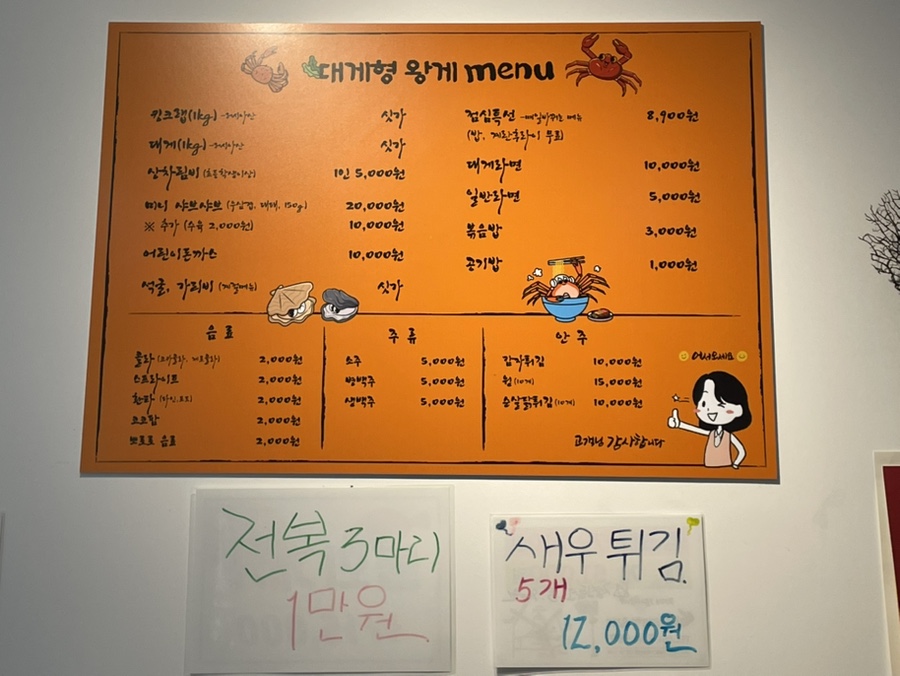 대게형 왕게 menu
킹크랩(1kg) -러시아산 싯가
대게(1kg) -러시아산 싯가
상차림비 (초등학생이상) 1인 5,000원
미니 샤브샤브 (우삼겹, 야채, 150g) 20,000원
※ 추가 (수육 2,000원) 10,000원
어린이돈까스 10,000원
석굴, 가리비 (계절메뉴) 싯가
점심특선 -매일바뀌는 메뉴 8,900원
(밥, 계란후라이 무료)
대게라면 10,000원
일반라면 5,000원
볶음밥 3,000원
공기밥 1,000원
음료
콜라 2,000원
스프라이트 2,000원
환타 (파인, 포도) 2,000원
코코팜 2,000원
뽀로로 음료 2,000원
주류
소주 5,000원
5,000원
생백주 5,000원
안주
감자튀김 10,000원
(10개) 15,000원
순살닭튀김 (10개) 10,000원
어서오세요
고객님 감사합니다
전복 3마리
1만원
새우 튀김
5개
12,000원